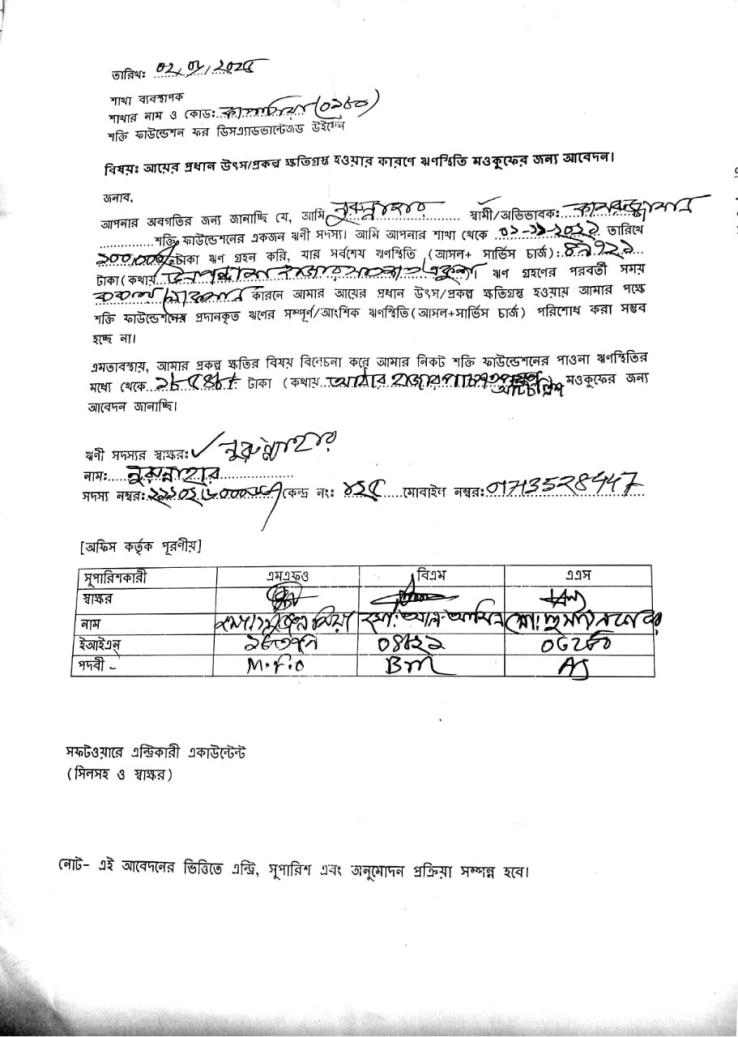 তারিখ: 02/0/2025
শাখা ব্যবস্থাপক
শাখার নাম ও কোড: কাপাসিয়া (0160)
শক্তি ফাউন্ডেশন ফর ডিসএ্যাডভান্টেজড উইমেন
বিষয়ঃ আয়ের প্রধান উৎস/প্রকল্প ক্ষতিগ্রস্ত হওয়ার কারণে ঋণস্থিতি মওকুফের জন্য আবেদন।
জনাব,
আপনার অবগতির জন্য জানাচ্ছি যে, আমি নুরুন্নাহার স্বামী/অভিভাবক:
শক্তি ফাউন্ডেশনের একজন ঋণী সদস্য। আমি আপনার শাখা থেকে তারিখে
২০০,০০০/= টাকা ঋণ গ্রহন করি, যার সর্বশেষ ঋণস্থিতি (আসল+ সার্ভিস চার্জ):
টাকা (কথায় ঋণ গ্রহণের পরবর্তী সময়
কারনে আমার আয়ের প্রধান উৎস/প্রকল্প ক্ষতিগ্রস্ত হওয়ায় আমার পক্ষে
শক্তি ফাউন্ডেশনের প্রদানকৃত ঋণের সম্পূর্ণ/আংশিক ঋণস্থিতি(আসল+সার্ভিস চার্জ) পরিশোধ করা সম্ভব
হচ্ছে না।
এমতাবস্থায়, আমার প্রকল্প ক্ষতির বিষয় বিবেচনা করে আমার নিকট শক্তি ফাউন্ডেশনের পাওনা ঋণস্থিতির
মধ্যে থেকে টাকা (কথায় হাজার পাঁচশত মওকুফের জন্য
আবেদন জানাচ্ছি।
ঋণী সদস্যের স্বাক্ষর: নুরুন্নাহার
নাম: নুরুন্নাহার
সদস্য নম্বর: কেন্দ্র নং: মোবাইল নম্বর: 01713528447
[অফিস কর্তৃক পূরণীয়]
সুপারিশকারী এমএফও বিএম এএস
স্বাক্ষর
নাম মোঃ আল-আমিন
ইআইএন
পদবী - M.F.O BM AS
সফটওয়ারে এন্ট্রিকারী একাউন্টেন্ট
(সিলসহ ও স্বাক্ষর)
নোট- এই আবেদনের ভিত্তিতে এন্ট্রি, সুপারিশ এবং অনুমোদন প্রক্রিয়া সম্পন্ন হবে।